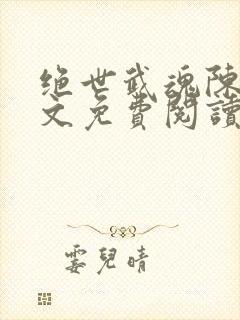 绝世武魂陈
文免費閱讀
雲兒晴